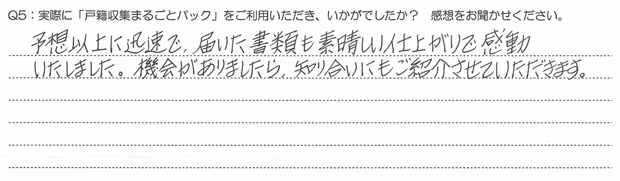 Q5：実際に「戸籍収集まるごとパック」をご利用いただき、いかがでしたか？ 感想をお聞かせください。
予想以上に迅速で、届いた書類も素晴しい仕上がりで感動
いたしました。機会がありましたら、知り合いにもご紹介させていただきます。